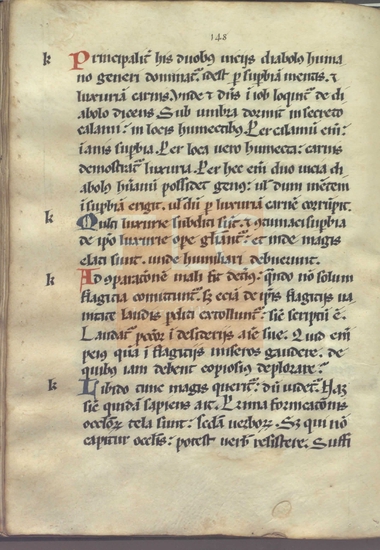 148
k Principalit̃ his duobus uiciis diabolus huma
no generi dominat̃. idest p̱ sup̱biā mentis. ⁊
luxuriā carnis. Vnde ⁊ dñs ĩ iob loquit̃ de di
abolo dicens. Sub umbra dormit in secreto
calami: in locis humectibus. Per calamū em̃:
ianis sup̱bia. Per loca uero humecta: carnis
demostrat̃ luxuria. Per hec em̃ duo uicia di
abolus hũanũ possidet genus: ul dum mẽtem
ĩ sup̱biā erigit. ul dũ p̱ luxuriā carnẽ corrũpit.
k Multi luxurie subditi sũt. ⁊ ꝯtumaci sup̱bia
de ip̃o luxurie ope gl̃iant̃: et inde magis
elati sunt. unde humiliari debuerunt.
k Ad ꝯparatoñẽ mali fit detius: qñdo nõ solum
flagitia comittunt̃. Sʒ eciã de ip̃is flagitiis ua
nitate laudis p̱diti extollunt̃: sic̃ scriptũ ẽ.
Laudat̃ pecc̃or ĩ desideriis aĩe sue. Quid em̃
peius quã ĩ flagitiis miseros gaudere. de
quibus iam debent copiosius deplorare:
k Libido tunc magis querit̃: dũ uidet̃. Nã
sic̃ quidã sapiens ait. Prima fornicatoñis
oculoꝝ tela sunt: secda uerboꝝ. Sʒ qui nõ
capitur oculis: potest uerbis resistere. Suffi